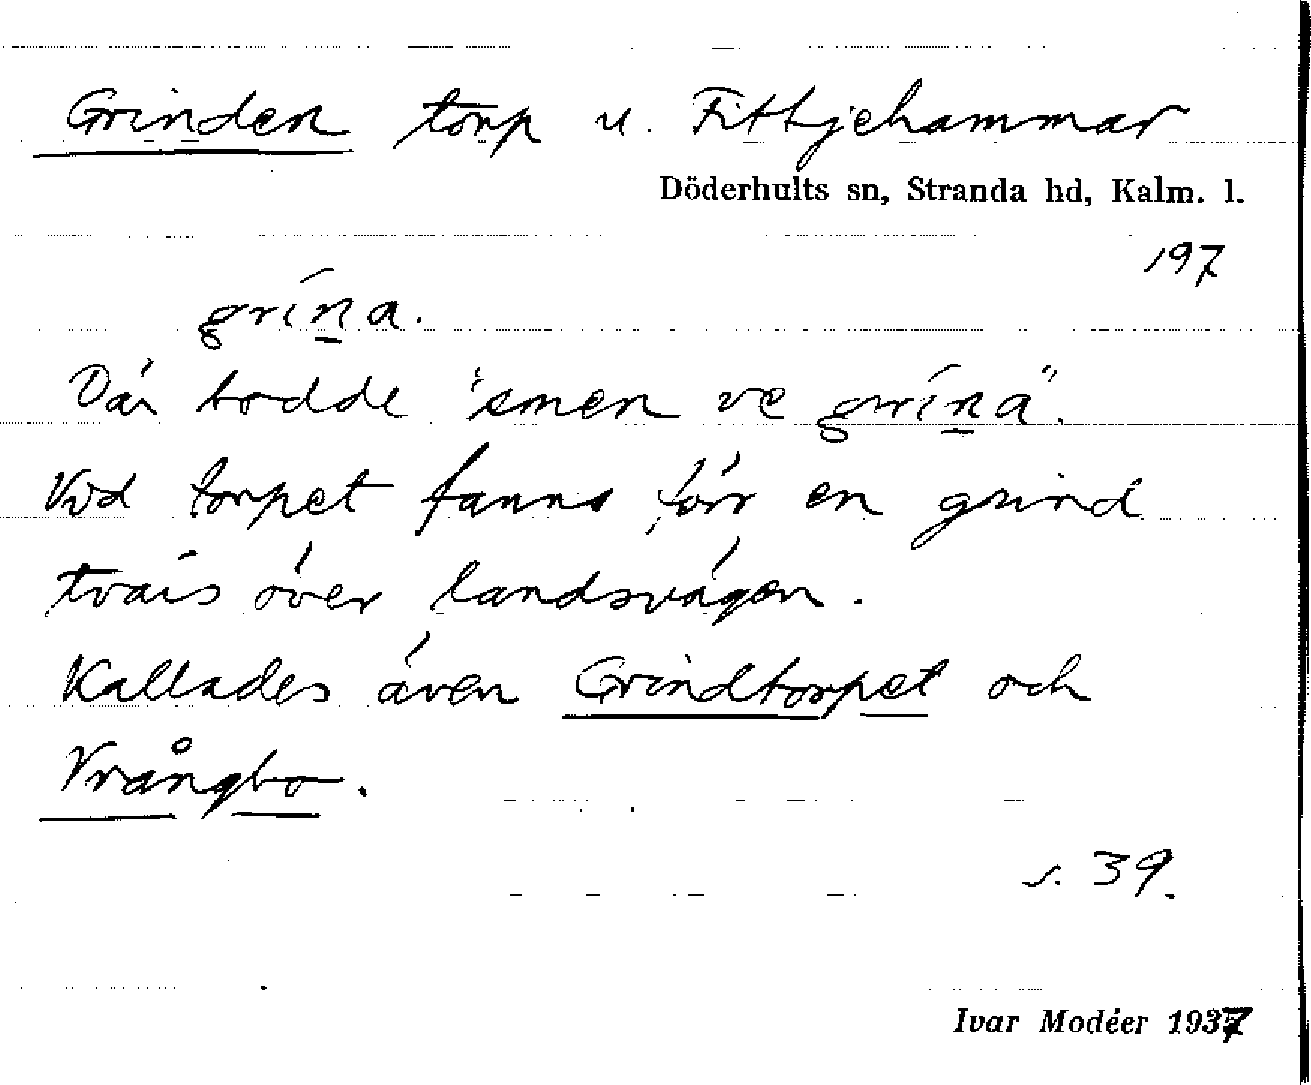 Grinden torp u. Fittjehammar
Döderhults sn, Stranda hd, Kalm. l.
197
grína.
Där bodde "smen ve grína".
Vid torpet fanns förr en grind
tvärs över landsvägen.
Kallades även Grindtorpet och
Vrångbo.
s. 39.
Ivar Modéer 1937